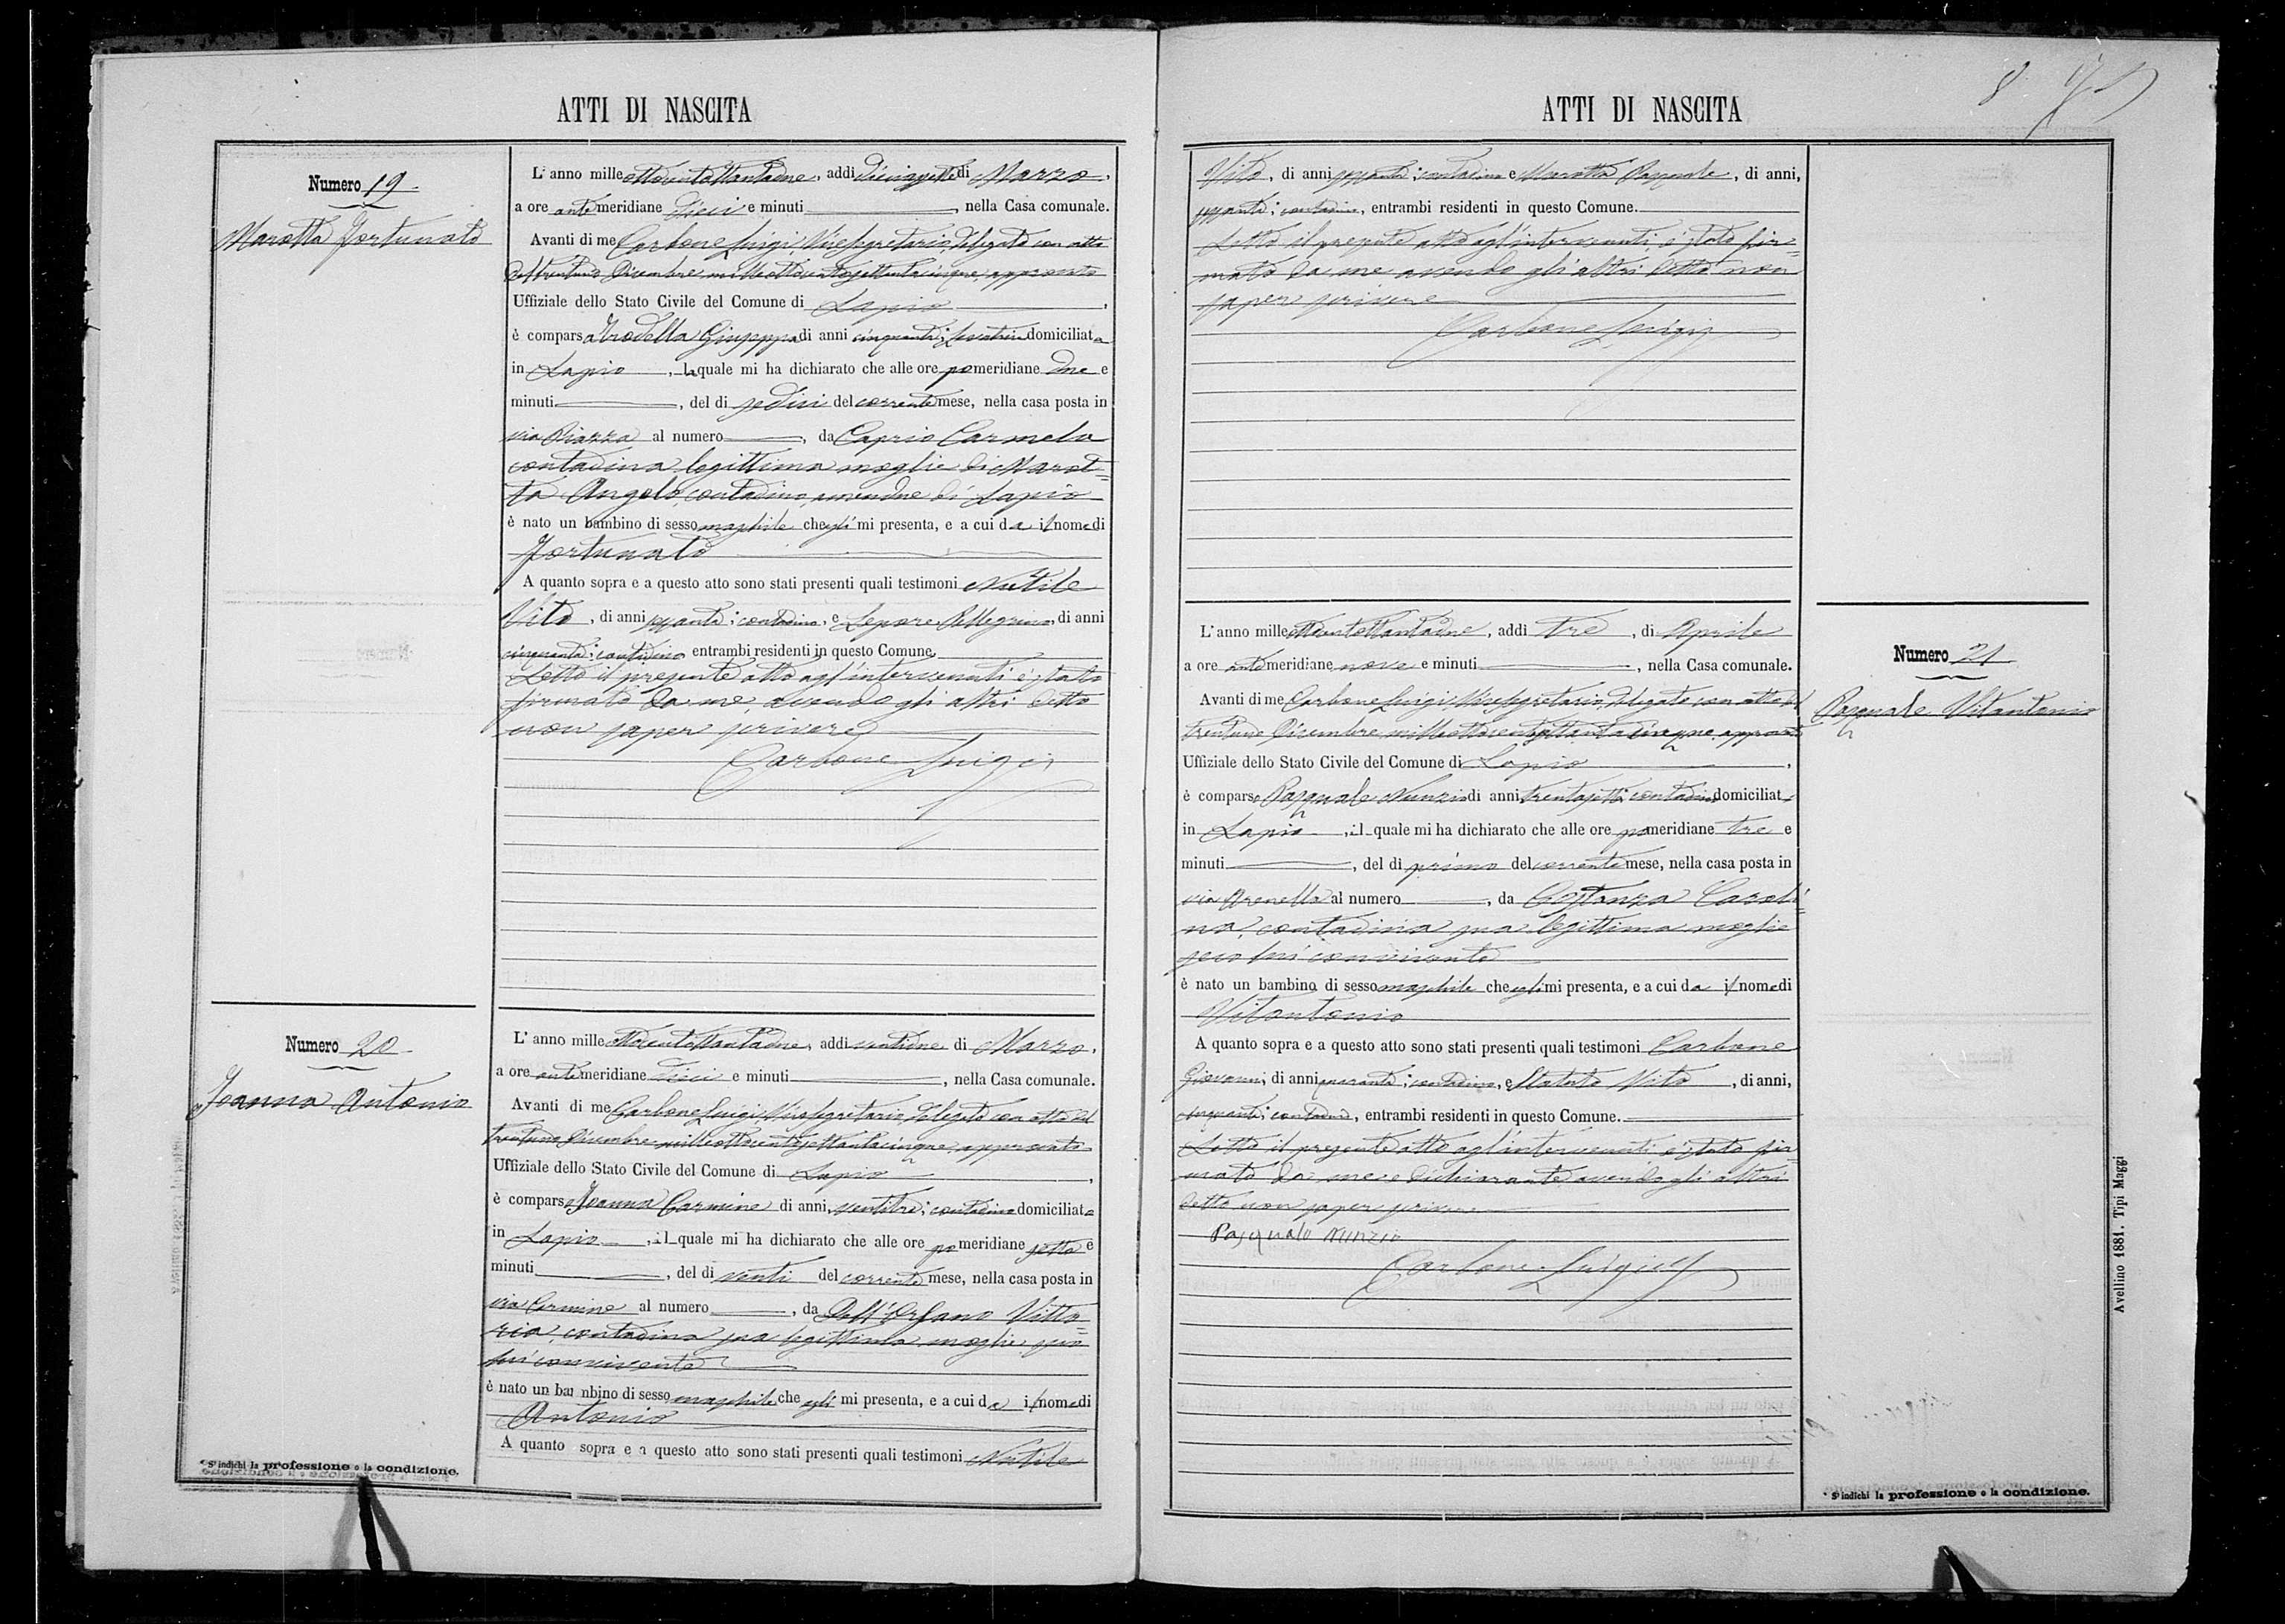 ATTI DI NASCITA
Numero 19.
Marotta Fortunato
L'anno mille ottocentottantadue, addi diciassette di Marzo,
a ore ante meridiane dieci e minuti, nella Casa comunale.
Avanti di me Carbone Luigi, Vicesegretario, delegato con atto
del trentuno Dicembre milleottocentosettantacinque, approvato
Uffiziale dello Stato Civile del Comune di Lapio,
è comparsa Giuseppa di anni cinquanta; levatrice domiciliata
in Lapio, la quale mi ha dichiarato che alle ore pomeridiane due e
minuti, del di sedici del corrente mese, nella casa posta in
via Piazza al numero, da Caprio Carmela
contadina legittima moglie di Marot=
ta Angelo, contadino, amendue di Lapio
è nato un bambino di sesso maschile che gli mi presenta, e a cui da il nome di
Fortunato
A quanto sopra e a questo atto sono stati presenti quali testimoni Nutile
Vito, di anni sessanta; contadino, e Lepore Pellegrino, di anni
cinquanta; contadino entrambi residenti in questo Comune.
Letto il presente atto agl'intervenuti è stato
firmato da me, avendo gli altri detto
non saper scrivere
Carbone Luigi
Numero 20.
Joanna Antonio
L'anno mille ottocentottantadue, addi ventidue di Marzo,
a ore ante meridiane dieci e minuti, nella Casa comunale.
Avanti di me Carbone Luigi, Vicesegretario, delegato con atto del
trentuno Dicembre milleottocentosettantacinque, approvato
Uffiziale dello Stato Civile del Comune di Lapio,
è comparso Joanna Carmine di anni ventitre; contadino domiciliato
in Lapio, il quale mi ha dichiarato che alle ore pomeridiane sette e
minuti, del di venti del corrente mese, nella casa posta in
via Carmine al numero, da Dell'Orfano Vitto=
ria, contadina sua legittima moglie, seco
lui convivente
è nato un bambino di sesso maschile che egli mi presenta, e a cui da il nome di
Antonio
A quanto sopra e a questo atto sono stati presenti quali testimoni Nutile
* S'indichi la professione o la condizione.
8
ATTI DI NASCITA
Vito, di anni sessanta; contadino e Marotta Pasquale, di anni,
sessanta; contadino, entrambi residenti in questo Comune.
Letto il presente atto agl'intervenuti, è stato fir=
mato da me avendo gli altri detto non
saper scrivere
Carbone Luigi
Numero 21
Pasquale Vitantonio
L'anno mille ottocentottantadue, addi tre, di Aprile
a ore ante meridiane nove e minuti, nella Casa comunale.
Avanti di me Carbone Luigi, Vicesegretario, delegato con atto del
trentuno Dicembre milleottocentosettantacinque, approvato
Uffiziale dello Stato Civile del Comune di Lapio,
è comparso Pasquale Nunzio di anni trentasette; contadino domiciliato
in Lapio, il quale mi ha dichiarato che alle ore pomeridiane tre e
minuti, del di primo del corrente mese, nella casa posta in
via Arenella al numero, da Costanza Caroli=
na, contadina sua legittima moglie
seco lui convivente
è nato un bambino di sesso maschile che egli mi presenta, e a cui da il nome di
Vitantonio
A quanto sopra e a questo atto sono stati presenti quali testimoni Carbone
Giovanni, di anni quaranta; contadino, e Statuto Vito, di anni,
cinquanta; contadino, entrambi residenti in questo Comune.
Letto il presente atto agl'intervenuti è stato fir=
mato da me e dichiarante avendo gli altri
detto non saper scrivere
Pasquale Nunzio
Carbone Luigi
Avellino 1881. Tipi Maggi
* S'indichi la professione o la condizione.